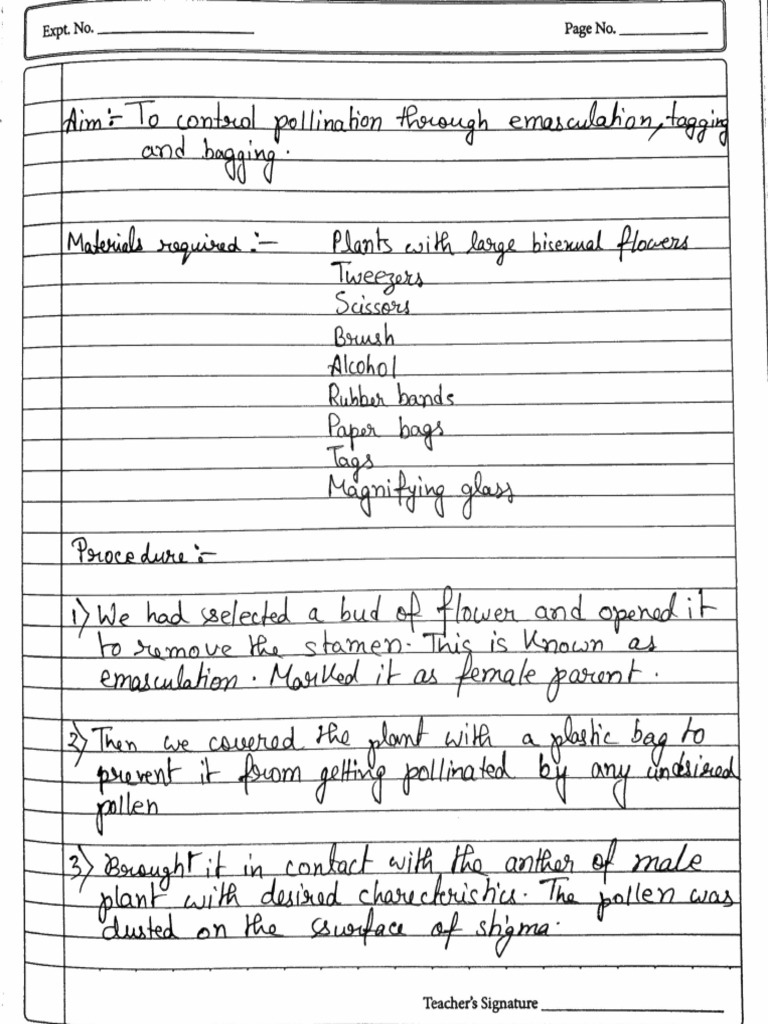 Expt. No. Page No.
Aim:- To control pollination through emasculation, tagging
and bagging.
Materials required :- Plants with large bisexual flowers
Tweezers
Scissors
Brush
Alcohol
Rubber bands
Paper bags
Tags
Magnifying glass
Procedure :-
1) We had selected a bud of flower and opened it
to remove the stamen. This is known as
emasculation. Marked it as female parent.
2) Then we covered the plant with a plastic bag to
prevent it from getting pollinated by any undesired
pollen
3) Brought it in contact with the anther of male
plant with desired charecteristics. The pollen was
dusted on the surface of stigma.
Teacher's Signature